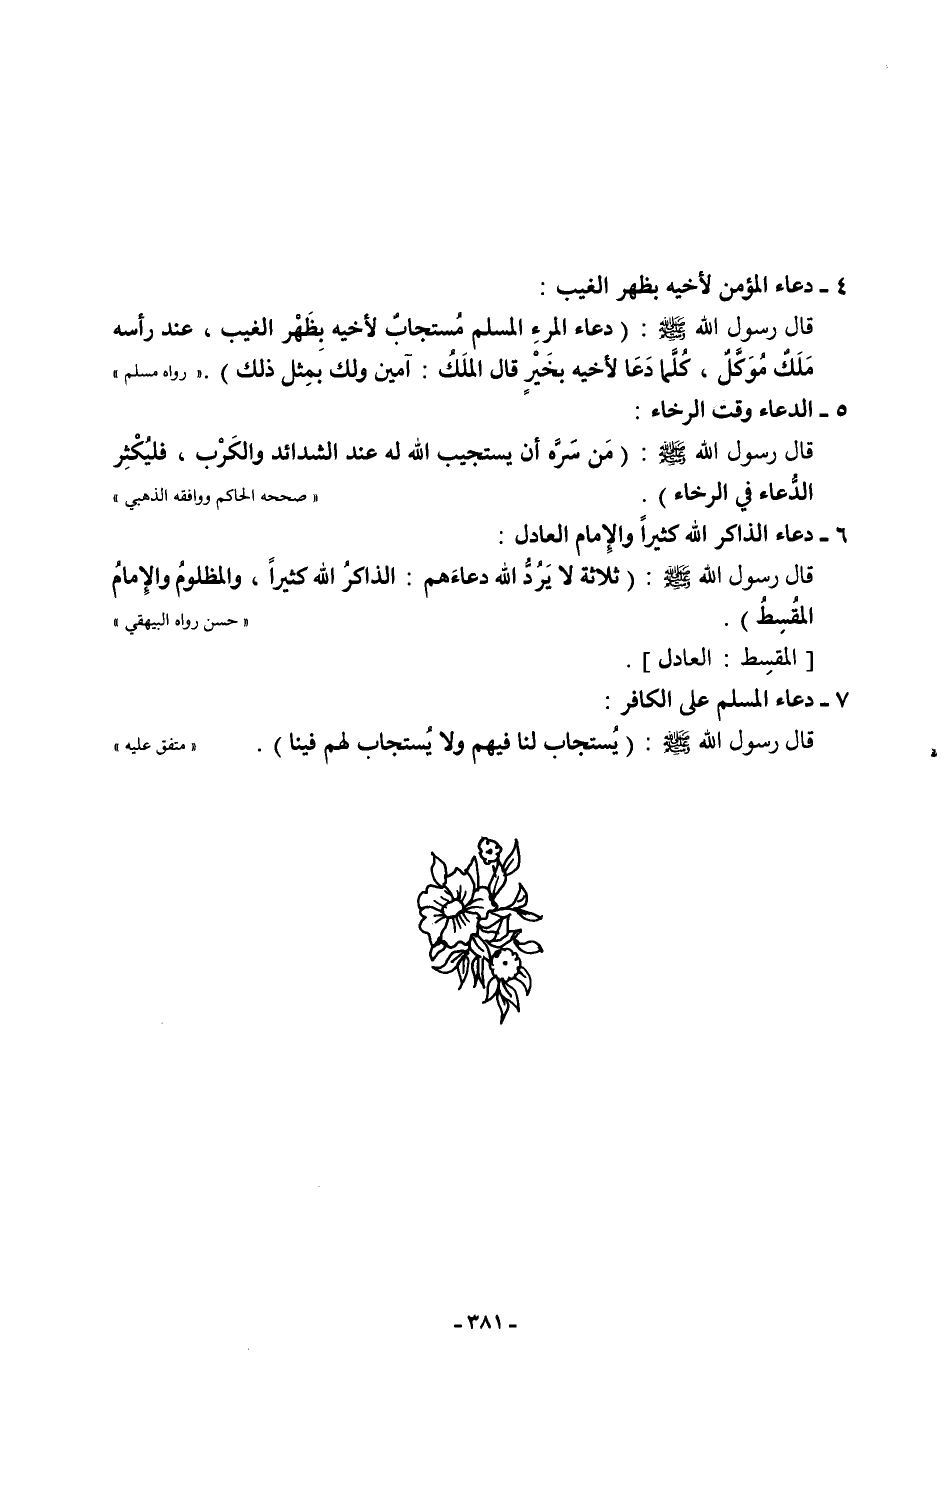 ٤ ـ دعاء المؤمن لأخيه بظهر الغيب :
قال رسول الله ﷺ : ( دعاء المرءِ المسلم مُستجابٌ لأخيه بِظَهْر الغيب ، عند رأسه
مَلَكٌ مُوَكَّلٌ ، كُلَّما دَعَا لأخيه بخَيْرٍ قال المَلَكُ : آمين ولك بمِثل ذلك ) . « رواه مسلم »
٥ ـ الدعاء وقت الرخاء :
قال رسول الله ﷺ : ( مَن سَرَّه أن يستجيب الله له عند الشدائد والكَرْب ، فليُكْثِر
الدُّعاء في الرخاء ) . « صححه الحاكم ووافقه الذهبي »
٦ ـ دعاء الذاكر الله كثيراً والإمام العادل :
قال رسول الله ﷺ : ( ثلاثة لا يَرُدُّ الله دعاءَهم : الذاكرُ الله كثيراً ، والمظلومُ والإمامُ
المُقسِطُ ) . « حسن رواه البيهقي »
[ المقسِط : العادل ] .
٧ ـ دعاء المسلم على الكافر :
قال رسول الله ﷺ : ( يُستجاب لنا فيهم ولا يُستجاب لهم فينا ) . « متفق عليه »
ـ ٣٨١ ـ